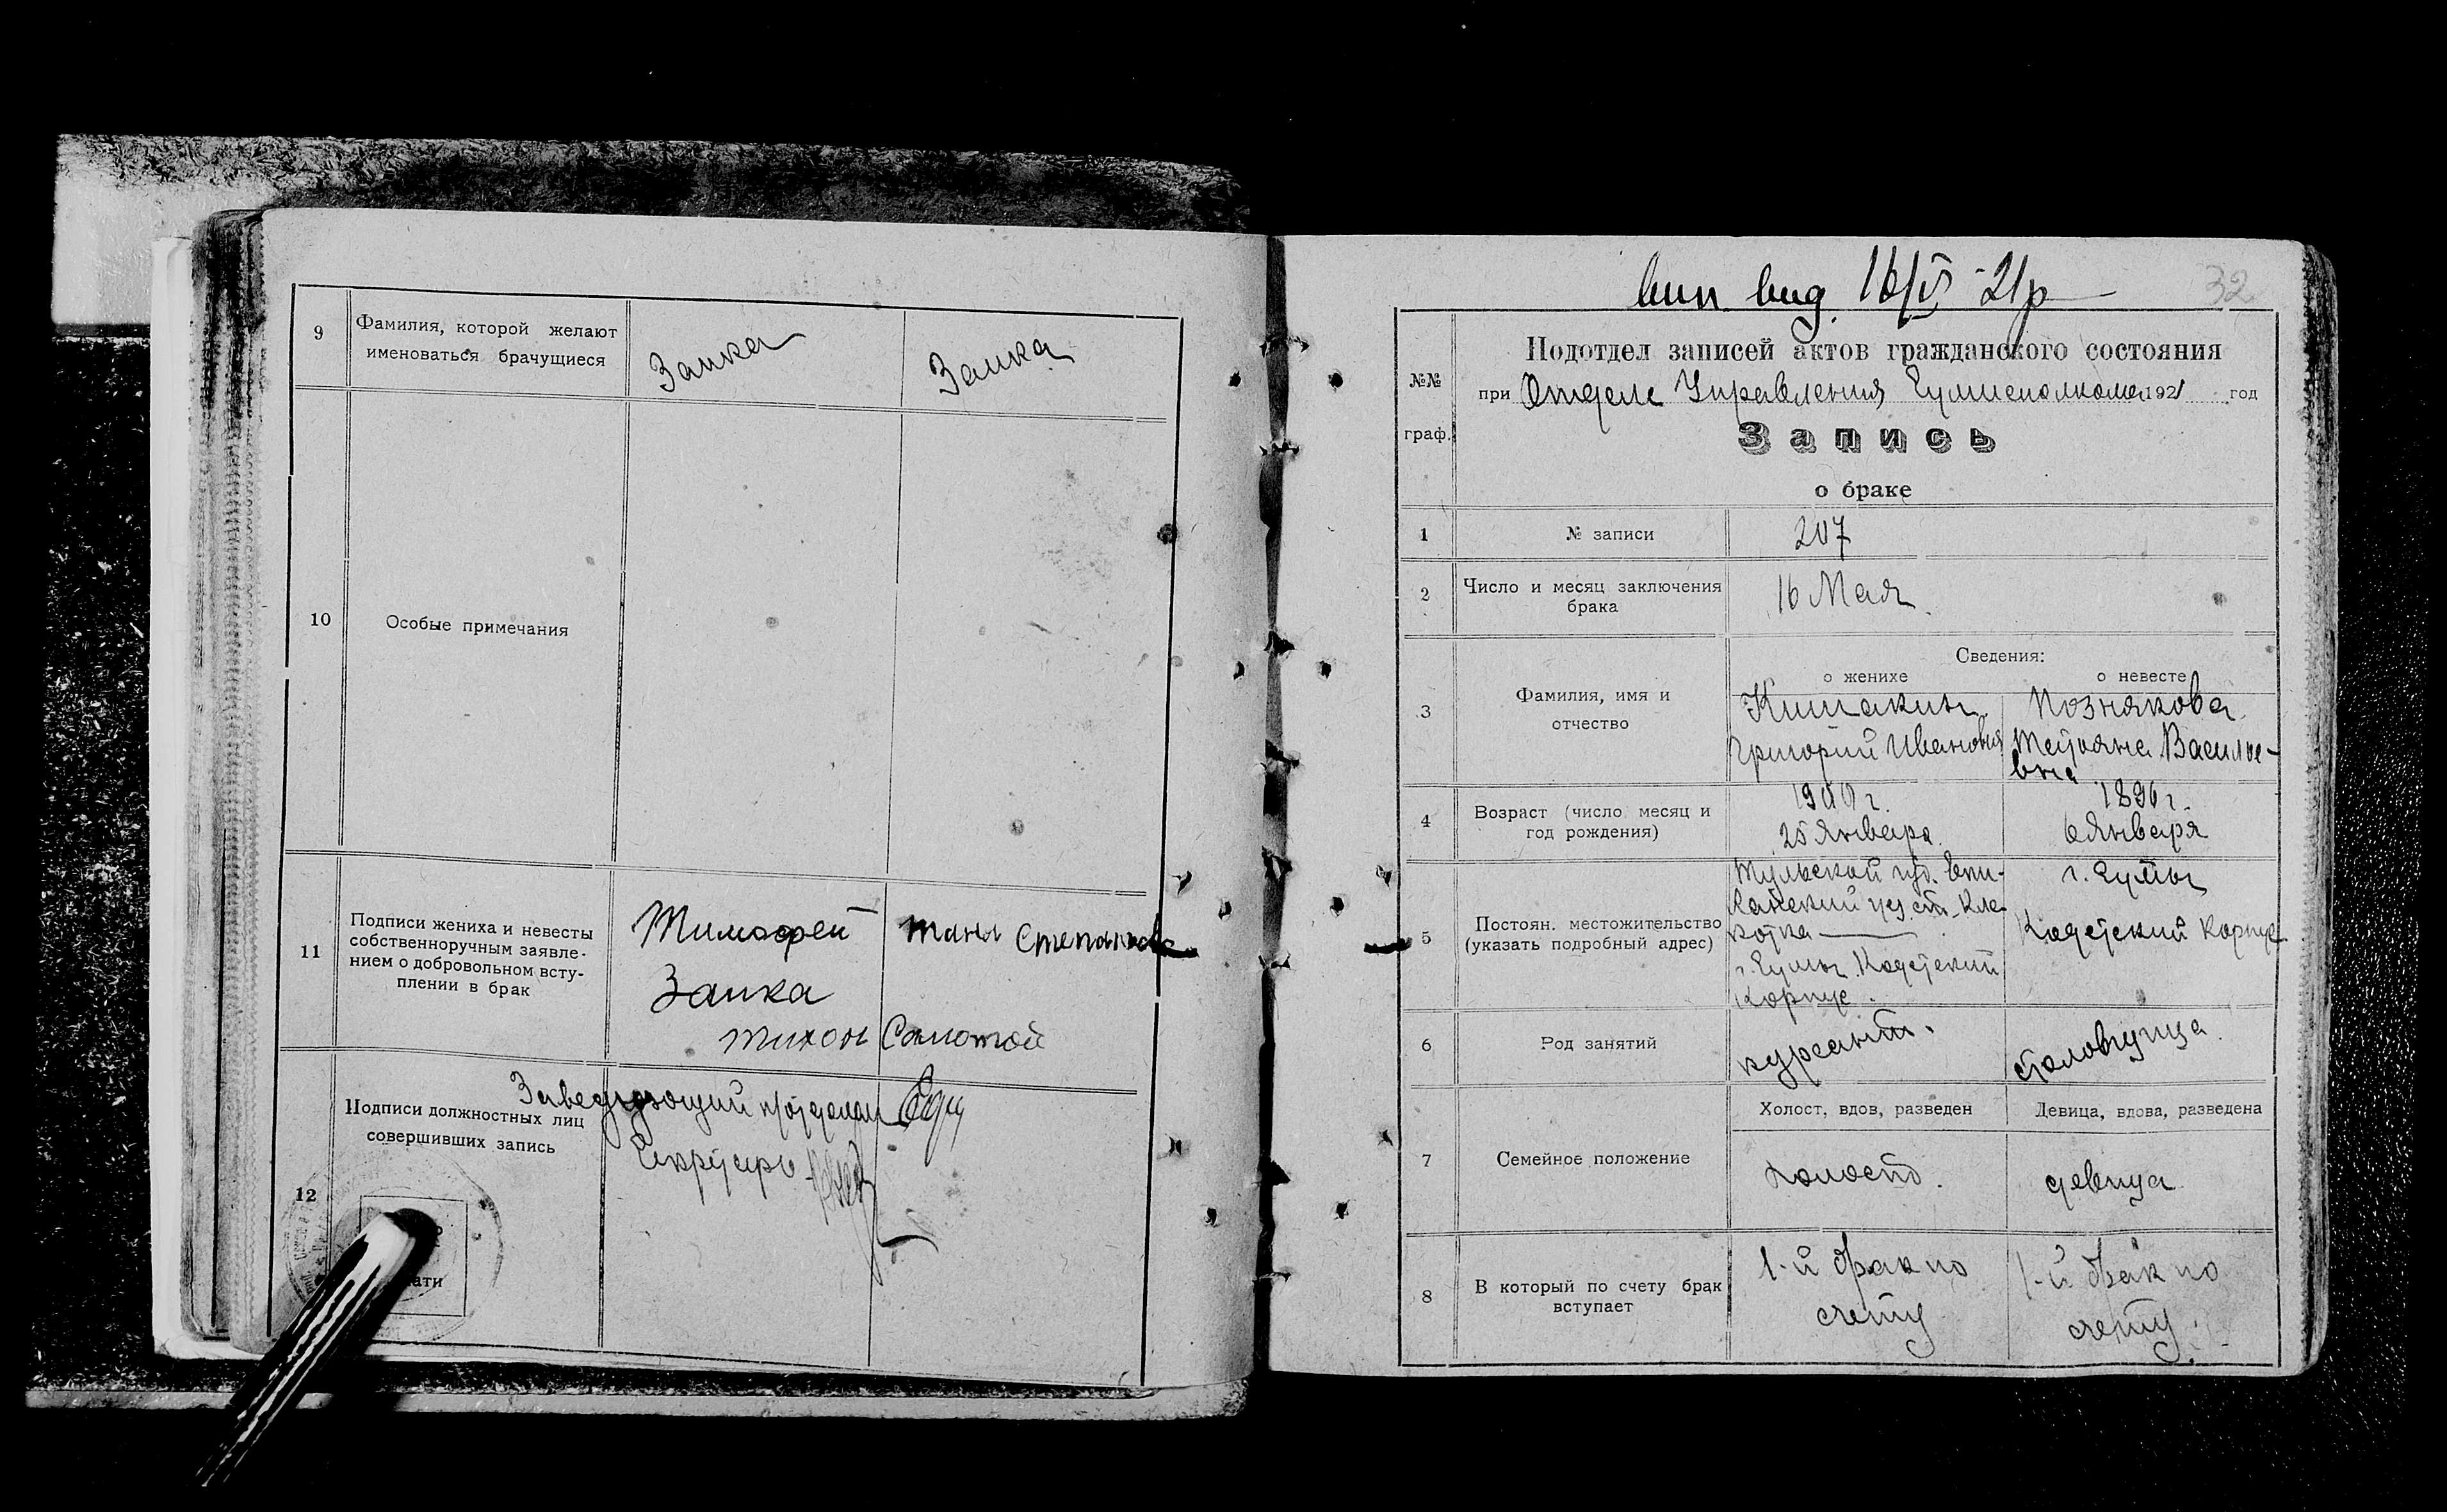 9
Фамилия, которой желают
именоваться брачущиеся
Заика
Заика
10
Особые примечания
11
Подписи жениха и невесты
собственноручным заявле-
нием о добровольном всту-
плении в брак
Тимофей
Заика
Степанова
Тихон
12
Подписи должностных лиц
совершивших запись
Заведующий
Секретарь
32
вип вид 16/V 21р
№№
граф.
Подотдел записей актов гражданского состояния
при Отделе Управления 1921 год
Запись
о браке
1
№ записи
207
2
Число и месяц заключения
брака
16 Мая
3
Фамилия, имя и
отчество
Сведения:
о женихе
о невесте
Кишакин
Григорий Иванович
Познякова
Татьяна Василье-
вна
4
Возраст (число месяц и
год рождения)
1900 г.
25 Января.
1896 г.
6 Января
5
Постоян. местожительство
(указать подробный адрес)
Тульской губ. Епи-
фанский уез. ст. Кле-
котка
г. Сумы Кадетский
Корпус.
г. Сумы
Кадетский Корпус
6
Род занятий
курсант.
7
Семейное положение
Холост, вдов, разведен
Девица, вдова, разведена
холост.
девица
8
В который по счету брак
вступает
1-й брак по
счету
1-й брак по
счету.